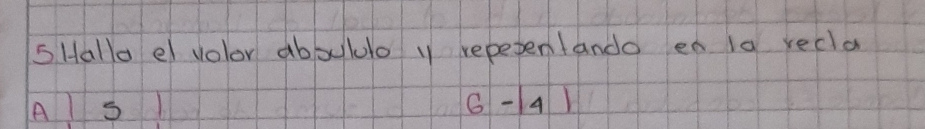 5 Halla el valor absoluto y repesentando en la recta
A | 5 | 6 -|4|